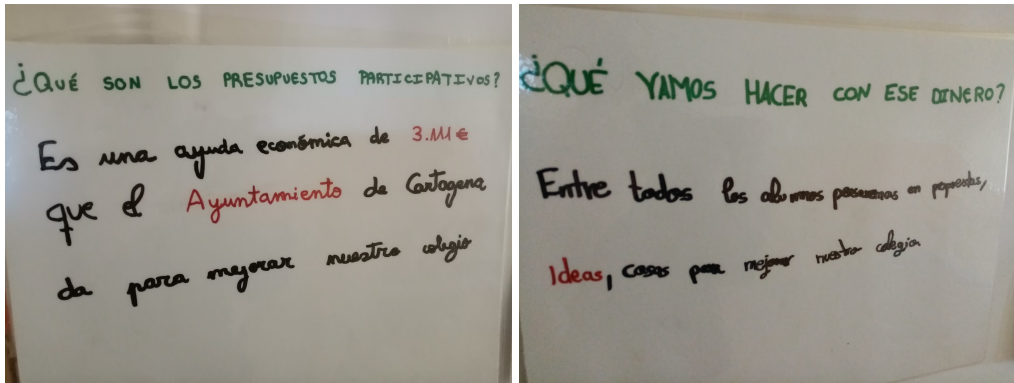 ¿QUÉ SON LOS PRESUPUESTOS PARTICIPATIVOS?
Es una ayuda económica de 3.111€
que el Ayuntamiento de Cartagena
da para mejorar nuestro colegio
¿QUÉ VAMOS HACER CON ESE DINERO?
Entre todos los alumnos pensaremos en propuestas,
Ideas, cosas para mejorar nuestro colegio